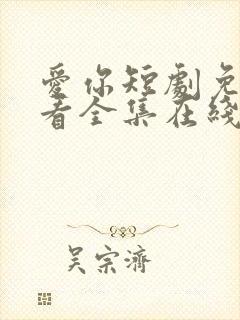 愛你短劇免
看全集在綫
吴宗濟